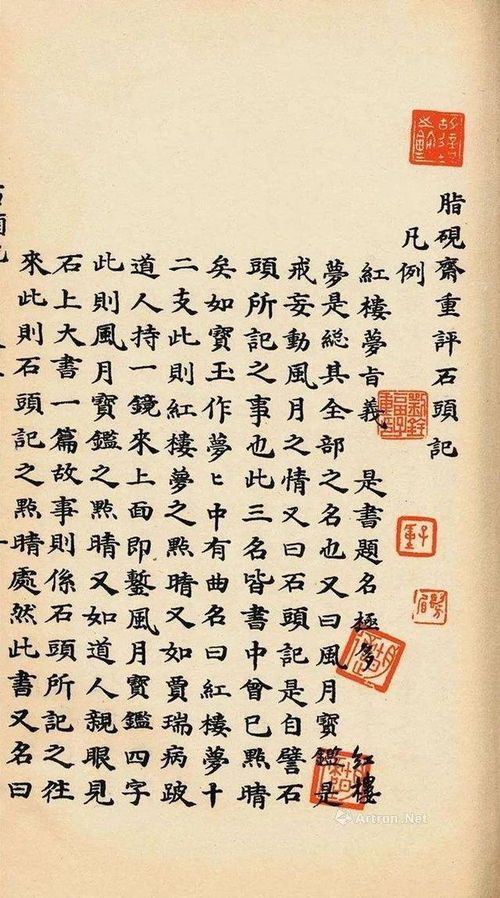 脂硯齋重評石頭記
凡例
紅樓夢旨義 是書題名極多 紅樓
夢是総其全部之名也又曰風月寶鑑是
戒妄動風月之情又曰石頭記是自譬石
頭所記之事也此三名皆書中曾已點晴
矣如寶玉作夢〻中有曲名曰紅樓夢十
二支此則紅樓夢之點晴又如賈瑞病跛
道人持一鏡來上面即鏨風月寶鑑四字
此則風月寶鑑之點晴又如道人親眼見
石上大書一篇故事則係石頭所記之往
來此則石頭記之點晴處然此書又名曰
劉銓福子重印
子重
Artron.Net